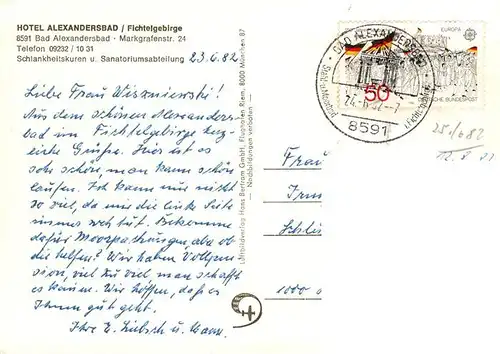 HOTEL ALEXANDERSBAD / Fichtelgebirge
8591 Bad Alexandersbad - Markgrafenstr. 24
Telefon 09232 / 10 31
Schlankheitskuren u. Sanatoriumsabteilung
23.6.82
Liebe Frau Wiszniewski!
Aus dem schönen Alexanders-
bad im Fichtelgebirge herz-
liche Grüße. Hier ist es
sehr schön, man kann schön
laufen. Ich kann nur nicht
so viel, da mir die linke Seite
immer weh tut. Bekomme
dafür Moorpackungen, aber ob
die helfen? Wir haben Vollpen-
sion, viel zu viel man schafft
es kaum. Wir hoffen, daß es
Ihnen gut geht.
Ihre E. Liebsch u. Mann.
Luftbildverlag Hans Bertram GmbH, Flughafen Riem, 8000 München 87
Nachbildungen verboten
BAD ALEXANDERSBAD
24.-6.82-7
8591
EUROPA
50
DEUTSCHE BUNDESPOST
Frau
1000